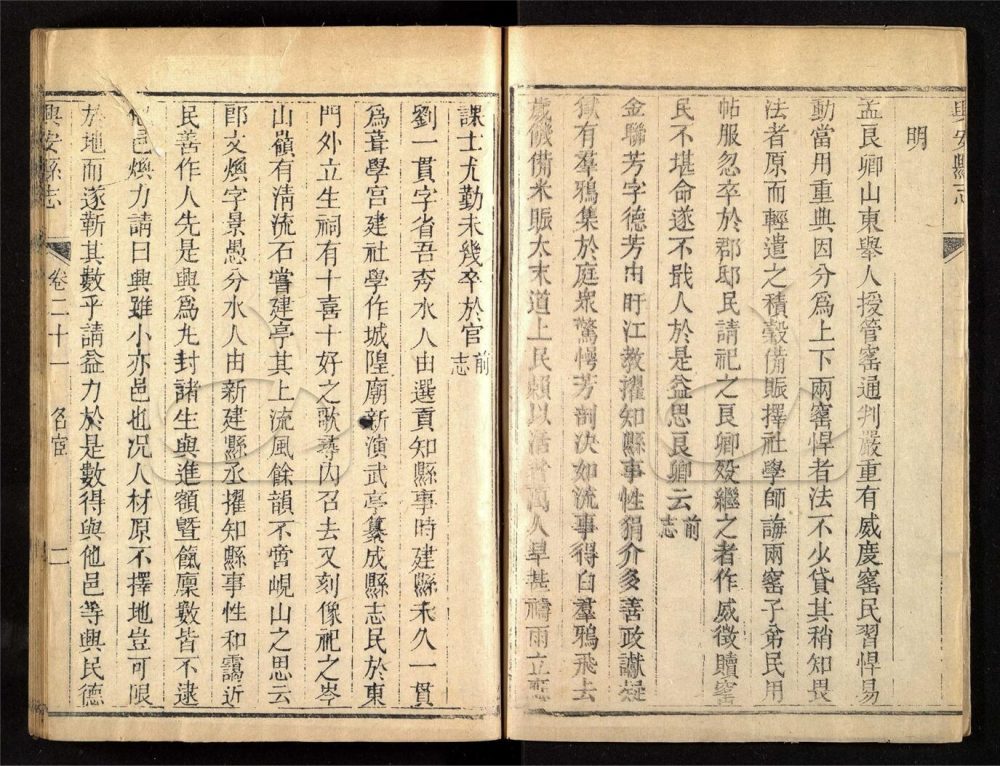 興安縣志
明
孟良卿山東舉人授管窰通判嚴重有威度窰民習悍易
動當用重典因分爲上下兩窰悍者法不少貸其稍知畏
法者原而輕遣之積穀備賑擇社學師誨兩窰子弟民用
帖服忽卒於郡邸民請祀之良卿歿繼之者作威徵贖窰
民不堪命遂不戢人於是益思良卿云前志
金聯芳字德芳由盱江教擢知縣事性狷介多善政讞疑
獄有羣鴉集於庭衆驚愕芳剖決如流事得白羣鴉飛去
歲饑備米賑太末道上民賴以活者萬人旱甚禱雨立應
課士尤勤未幾卒於官前志
劉一貫字省吾秀水人由選貢知縣事時建縣未久一貫
爲葺學宫建社學作城隍廟新演武亭纂成縣志民於東
門外立生祠有十喜十好之歌尋内召去又刻像祀之岑
山嶺有清流石嘗建亭其上流風餘韻不啻峴山之思云
郎文煥字景愚分水人由新建縣丞擢知縣事性和靄近
民善作人先是興爲九封諸生與進額曁餼廩數皆不逮
他邑煥力請曰興雖小亦邑也况人材原不擇地豈可限
於地而遂靳其數乎請益力於是數得與他邑等興民德
興安縣志 卷二十一 名宦 二